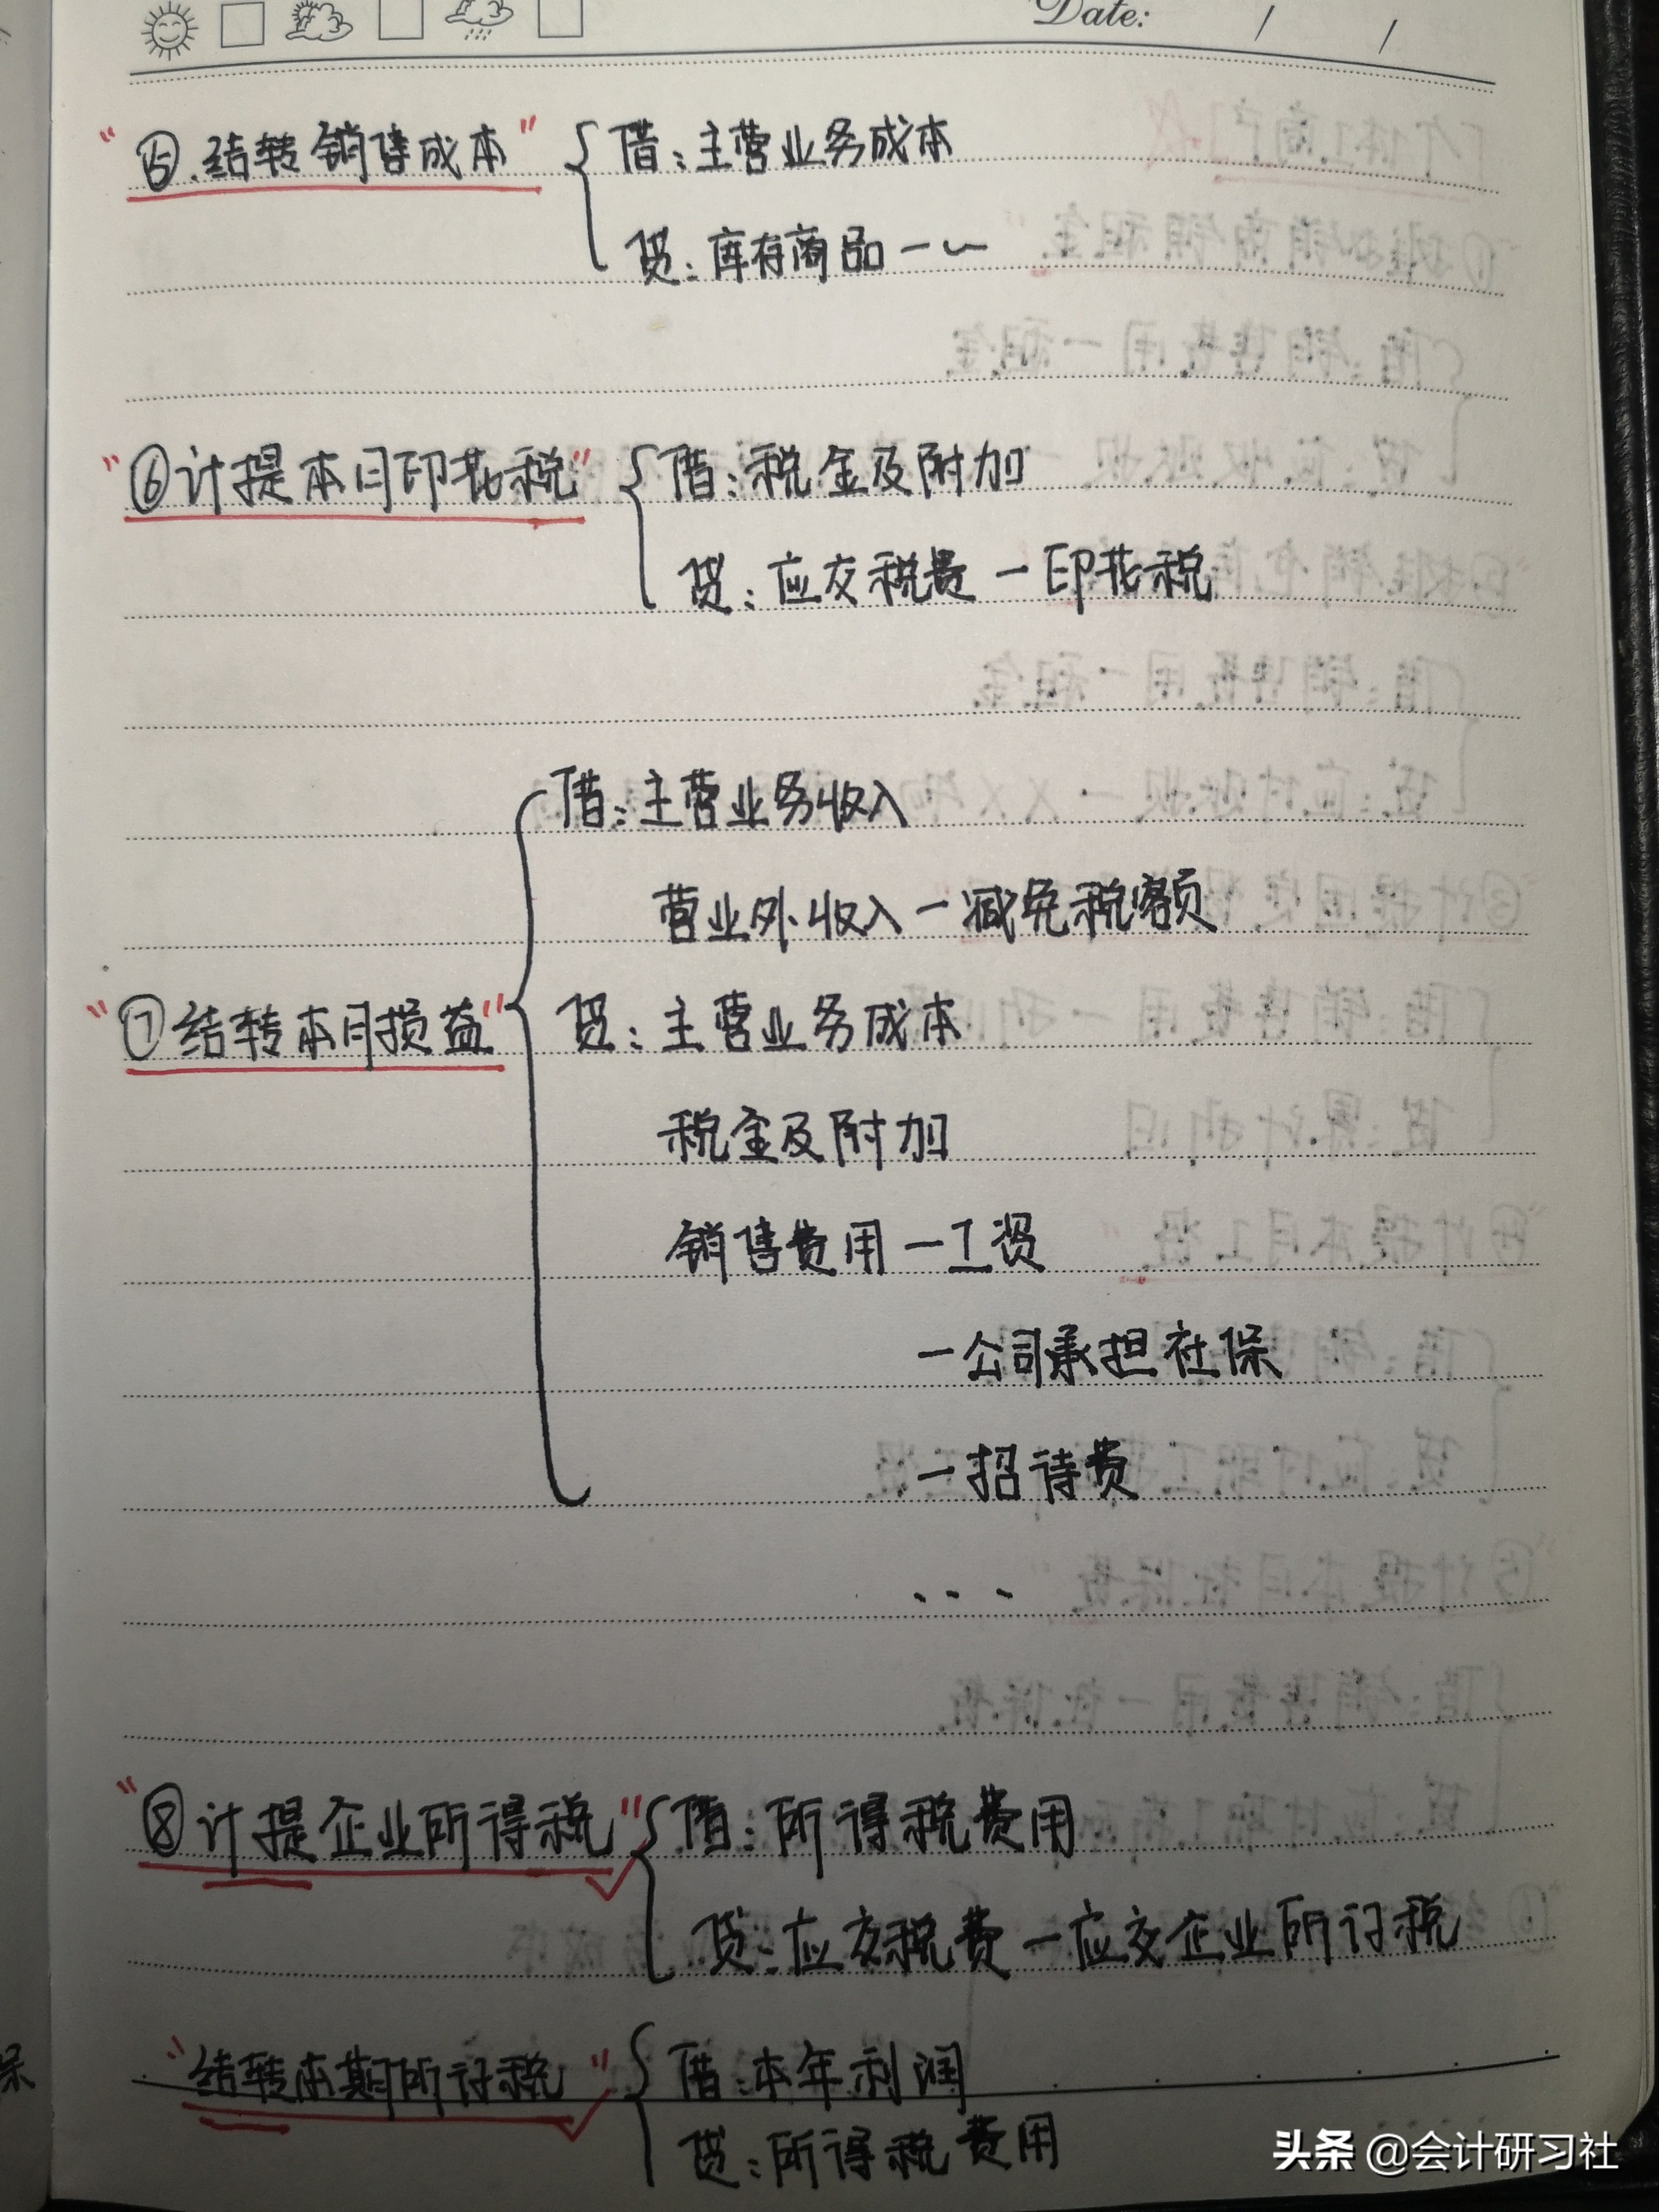 Date: / /
"⑤.结转销售成本" 借:主营业务成本
贷:库存商品一~
"⑥计提本月印花税" 借:税金及附加
贷:应交税费一印花税
借:主营业务收入
营业外收入一减免税额
"⑦结转本月损益" 贷:主营业务成本
税金及附加
销售费用一工资
一公司承担社保
一招待费
...
"⑧计提企业所得税" 借:所得税费用
贷:应交税费一应交企业所订税
"结转本期所订税" 借:本年利润
贷:所得税费用
头条 @会计研习社